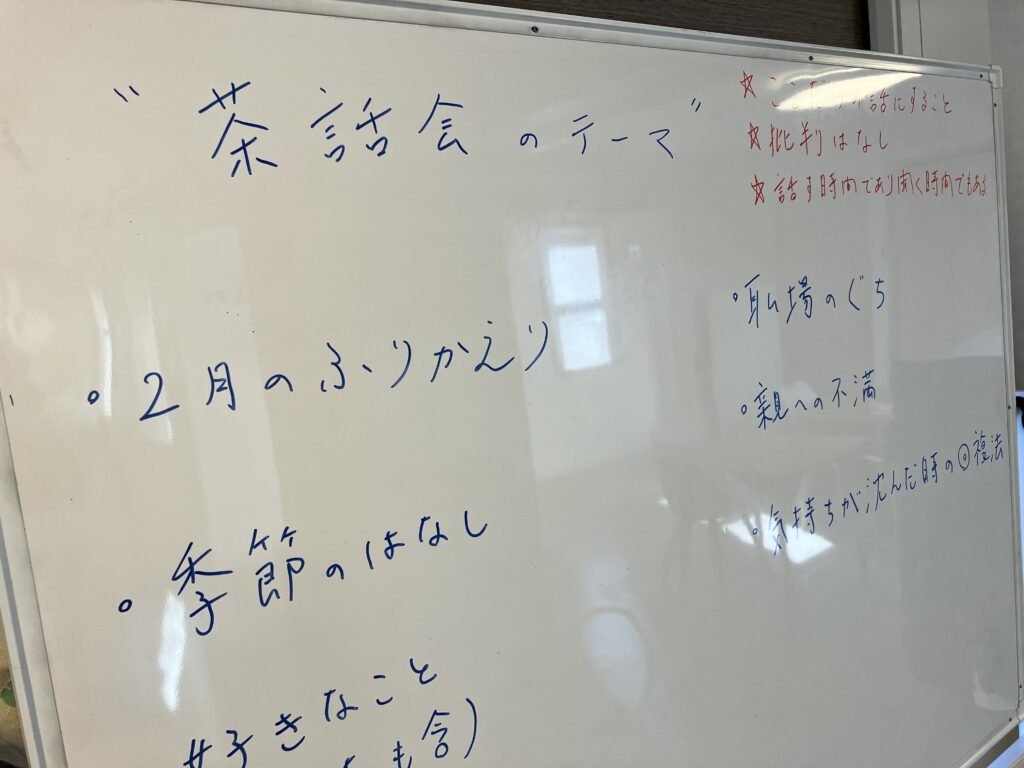 "茶話会のテーマ"
☆ここだけの話にすること
☆批判はなし
☆話す時間であり聞く時間でもある
・2月のふりかえり
・季節のはなし
好きなこと
も含)
・職場のぐち
・親への不満
・気持ちが沈んだ時の回復法